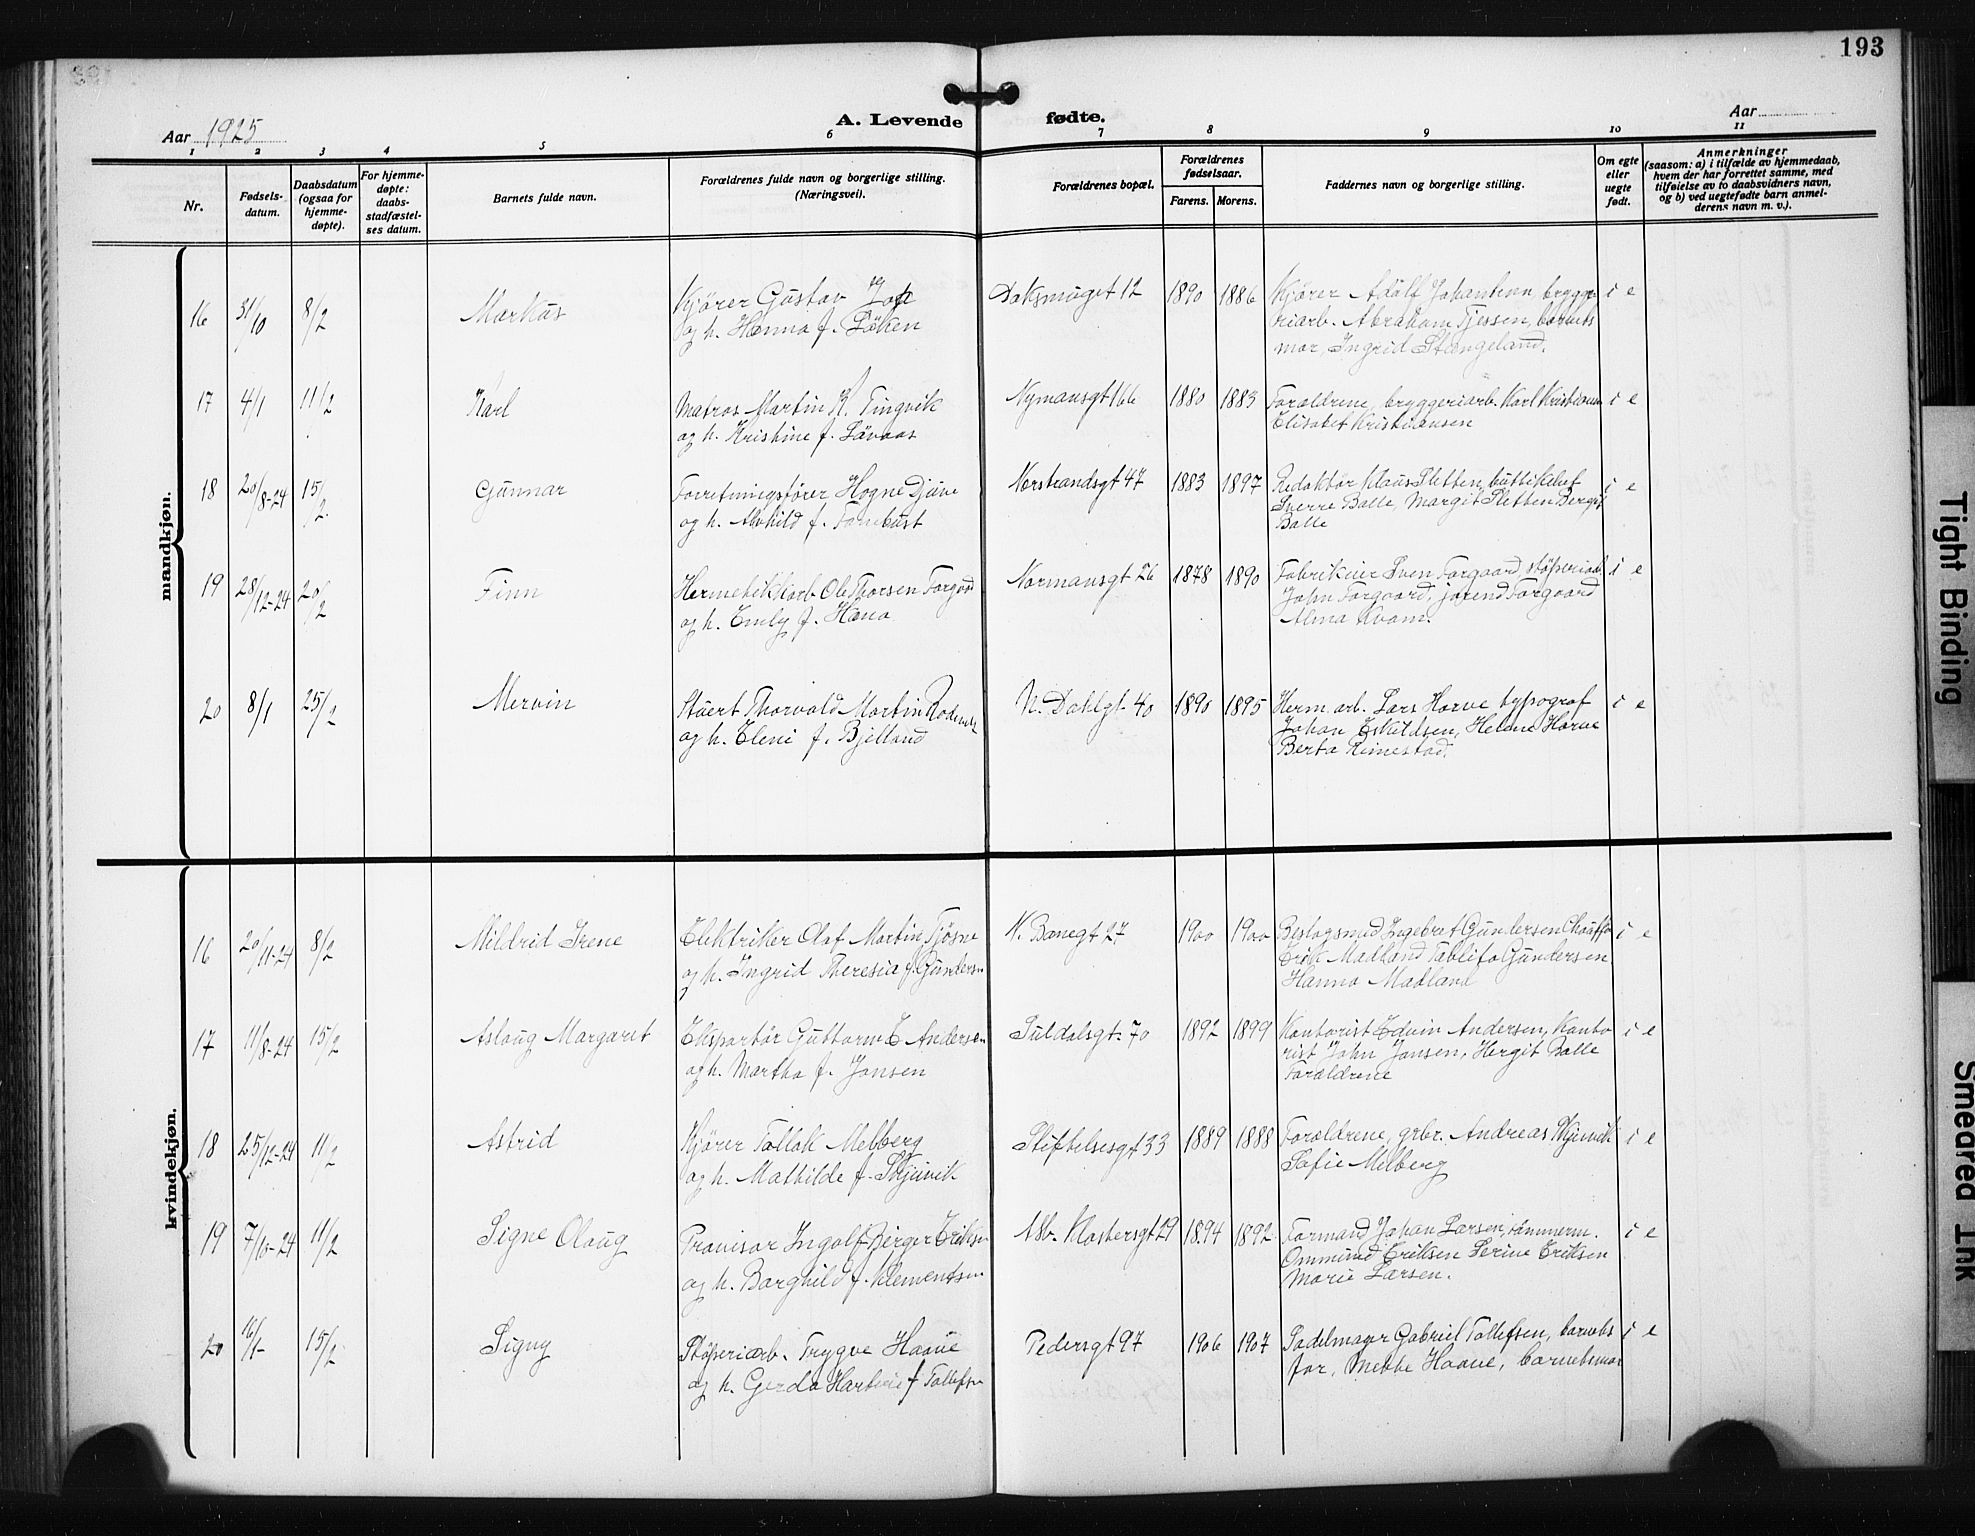 193
Aar 1925
A. Levende fødte.
Aar
1 2 3 4 5 6 7 8 9 10 11
Nr.
Fødsels-
datum.
Daabsdatum
(ogsaa for
hjemme-
døpte).
For hjemme-
døpte:
daabs-
stadfæstel-
ses datum.
Barnets fulde navn.
Forældrenes fulde navn og borgerlige stilling.
(Næringsvei).
Forældrenes bopæl.
Forældrenes
fødselsaar.
Farens. Morens.
Faddernes navn og borgerlige stilling.
Om egte
eller
uegte
født.
Anmerkninger
(saasom: a) i tilfælde av hjemmedaab,
hvem der har forrettet samme, med
tilføielse av to daabsvidners navn,
og b) ved uegtefødte barn anmel-
derens navn m. v.).
mandkjøn.
16 31/10 8/2 Markus Kjører Gustav Doksmuget 12 1890 1886 Kjører Adolf Johansen, brygge i e
og h. Hanna f. Löken riarb. Abraham Tjessen, barnets
mor, Ingrid Stangeland.
17 4/1 11/2 Karl Matros Martin K. Tingvik Nymansgt 166 1880 1883 Forældrene, bryggeriarb. Karl Kristiansen i e
og h. Kristine f. Lövaas Elisabet Kristiansen
18 20/8-24 15/2 Gunnar Forretningsfører Hogne Djuve Nerstrandsgt 47 1883 1897 Redaktør Klaus Sletten, buttikchef i e
og h. Alvhild f. Sverre Balle, Margit Sletten Bergit
Balle
19 28/12-24 20/2 Finn Hermetikkarb Ole Thorsen Forgaard Normansgt 26 1878 1890 Fabrikeier Sven Forgaard, støperiarb i e
og h. Emly f. Hana John Forgaard, jorend Forgaard
Alma Kvam.
20 8/1 25/2 Mervin Stuert Thorvald Martin N. Dahlgt 40 1890 1895 Herm. arb. Lars Horve typograf i e
og h. Eleni f. Bjelland Johan Eskildsen, Helene Horve
Berta Rimestad.
kvindekjøn.
16 20/11-24 8/2 Mildrid Irene Elektriker Olaf Martin Tjøsne N. Banegt 27 1900 1900 Beslagsmed Ingebret Gundersen Chauffør i e
og h. Ingrid Theresia f. Gundersen Erik Madland Tablita Gundersen
Hanna Madland
17 11/8-24 15/2 Aslaug Margaret Ekspartør Guttorm E Andersen Suldalsgt. 70 1892 1899 Kontorist Edvin Andersen, Konto i e
og h. Martha f. Jansen rist John Jansen, Hergit Balle
Forældrene
18 25/12-24 11/2 Astrid Kjører Tollak Melberg Stiftelsesgt 33 1889 1888 Forældrene, grbr. Andreas i e
og h. Mathilde f. Skjeivik Sofie Melberg
19 7/10-24 11/2 Signe Olaug Provisor Ingolf Birger Eriksen Nb. Klostersgt 29 1894 1892 Formand Johan Larsen, tømmerm. i e
og h. Borghild f. Klementsen Ommund Eriksen Serine Eriksen
Marie Larsen.
20 16/1 15/2 Signy Støperiarb. Trygve Haaue Pedersgt 97 1906 1907 Sadelmager Gabriel Tollefsen, barnets i e
og h. Gerda f. Tollefsen far, Mekke Haaue, barnets mor
Tight Binding
Smeared Ink